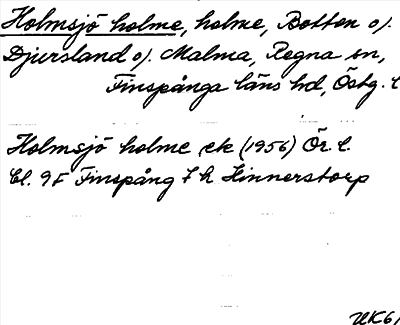 Holmsjö holme, holme, Botten o).
Djursland o). Malma, Regna sn,
Finspånga läns hd, Östg. l
Holmsjö holme ek (1956) Ör. l.
Bl. 9F Finspång 7 h Hinnerstorp
UK61